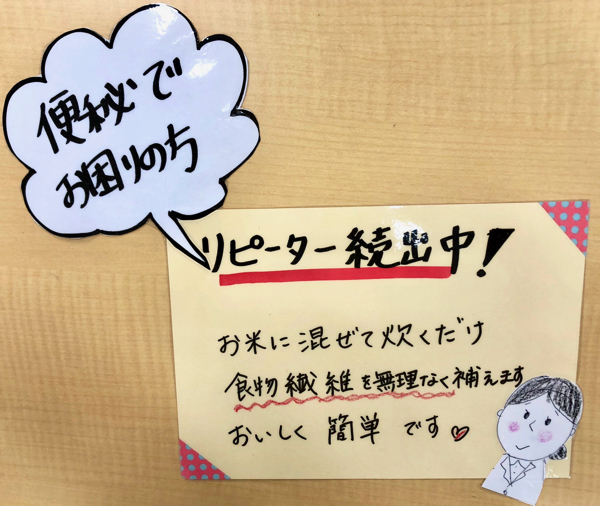 便秘で
お困りの方
リピーター続出中!
お米に混ぜて炊くだけ
食物繊維を無理なく補えます
おいしく簡単です♡